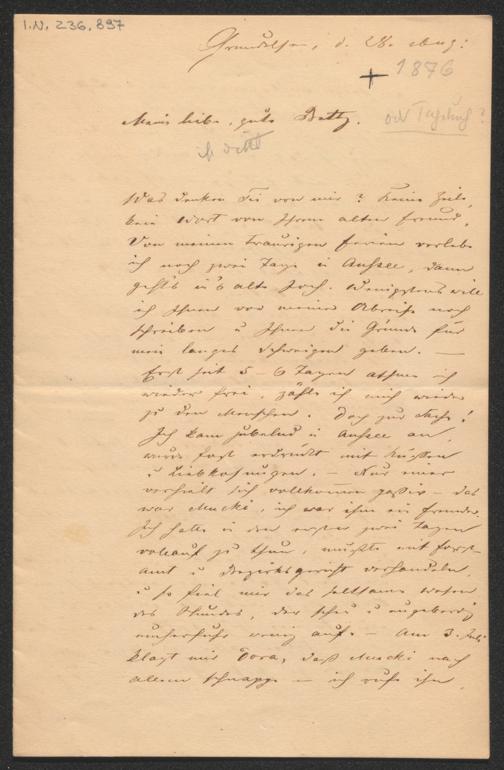 I.N. 236.897
Grundlsee, d. 28. Aug:
1876
Meine liebe, gute Betty.
oder Tagebuch?
Was denken Sie von mir? Keine Zeile,
kein Wort von Ihrem alten Freund.
Von meinen traurigen Ferien verlebe
ich noch zwei Tage in Aussee, dann
geht's in's alte Joch. Wenigstens will
ich Ihnen vor meiner Abreise noch
schreiben u Ihnen die Gründe für
mein langes Schweigen geben. —
Erst seit 5–6 Tagen athme ich
wieder frei, zähle ich mich wieder
zu den Menschen. Doch zur Sache!
Ich kam jubelnd in Aussee an,
wurde fast erdrückt mit Küssen
u Liebkosungen. — Nur einer
verhielt sich vollkommen passiv — das
war Mucki, ich war ihm ein Fremder.
Ich hatte in den ersten zwei Tagen
vollauf zu thun, mußte mit Forst-
amt u Bezirksgericht verhandeln,
u so fiel mir das seltsame Wesen
des Hundes, der scheu u ungeberdig
umherfuhr wenig auf. — Am 3. Juli
klagt mir Dora, daß Mucki nach
allem schnappe — ich rufe ihn,